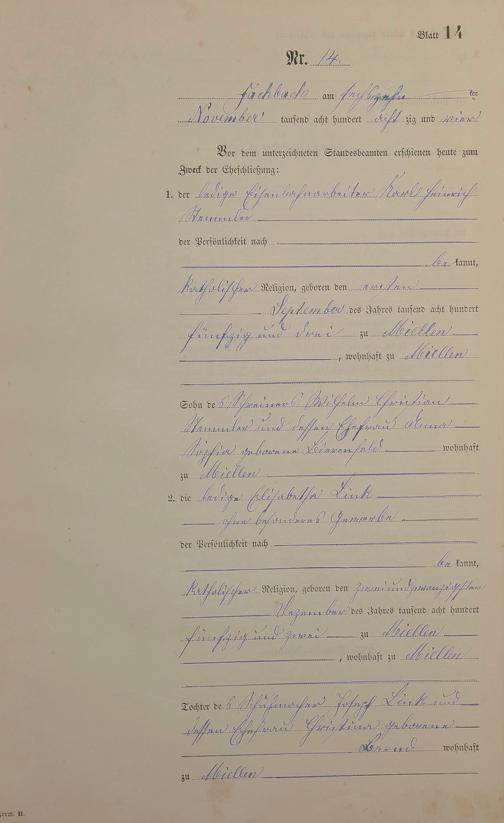 Blatt 14
Nr. 14.
Fachbach am sechszehn ten
November tausend acht hundert acht zig und vier
Vor dem unterzeichneten Standesbeamten erschienen heute zum
Zweck der Eheschließung:
1. der ledige Eisenbahnarbeiter Karl Heinrich
Stemmler
der Persönlichkeit nach
be kannt,
katholischer Religion, geboren den ersten
September des Jahres tausend acht hundert
fünfzig und drei zu Miellen
, wohnhaft zu Miellen
Sohn des Schreiners Wilhelm Christian
Stemmler und dessen Ehefrau Anna
Sophia geborene wohnhaft
zu Miellen
2. die ledige Elisabetha Link
ohne besonderes Gewerbe
der Persönlichkeit nach
be kannt,
katholischer Religion, geboren den zweiundzwanzigsten
Dezember des Jahres tausend acht hundert
fünfzig und zwei zu Miellen
, wohnhaft zu Miellen
Tochter des Schuhmacher Joseph Link und
dessen Ehefrau Christina geborene
wohnhaft
zu Miellen